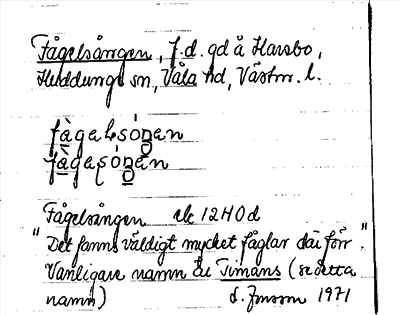 Fågelsången, f.d. gd å Harsbo,
Huddunge sn, Våla hd, Västm. l.
fàgalsóŋan
fàgaʂóŋan
Fågelsången ek 12H0d
"Det fanns väldigt mycket fåglar där förr."
Vanligare namn är Timans (se detta
namn) d. Jonsson 1971